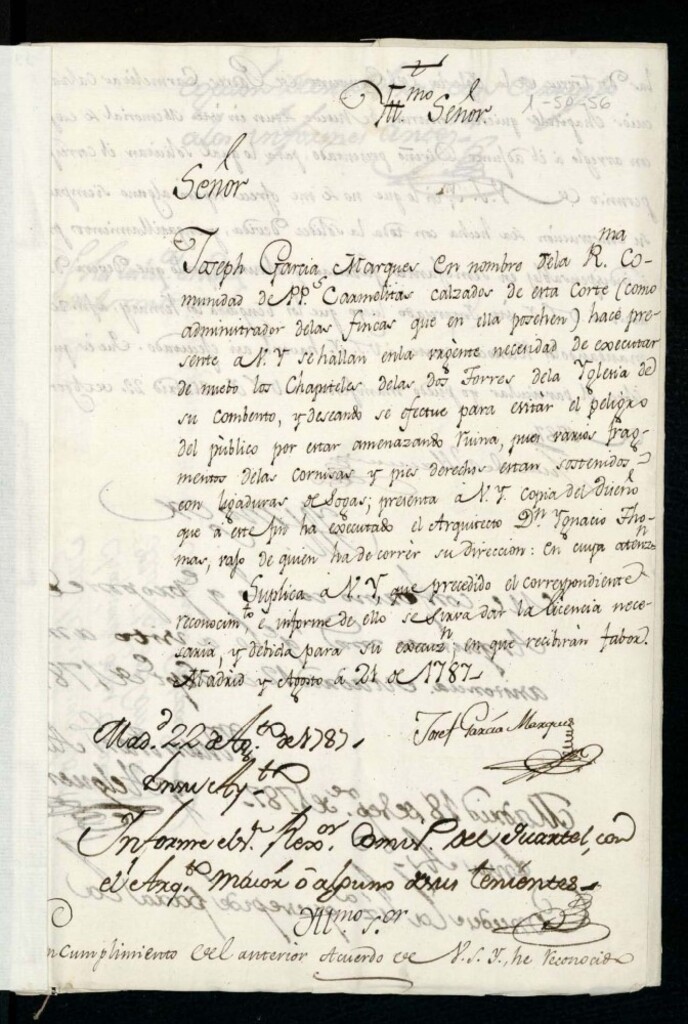 ✝
Yll.mo Señor
1-50-56
Señor
Joseph Garcia, Marques en nombre dela R.ma Co-
munidad de PP.s Caamelitas calzados de esta Corte (como
administrador delas fincas que en ella poshen) hace pre-
sente a V. Y se hallan enla urgente necesidad de executar
de nuebo los Chapiteles delas dos Torres dela Yglesia de
su Combento, y deseando se efectue para evitar el peligro
del público por estar amenazando ruina, pues varios frag-
mentos delas cornisas y pies derechos estan sostenidos
con ligaduras de Sogas; presenta á V. Y. copia del diseño
que á este fin ha executado el Arquitecto D.n Ygnacio Tho-
mas, vajo de quien ha de correr su direccion: en cuya atenz.n
Suplica á V. Y. que precedido el correspondiente
reconocim.to e informe de ello se sirva dar la licencia nece-
saria, y debida para su execuz.n en que recibirán fabor.
Madrid y Agosto á 21 de 1787.
Josef Garcia Marques
Mad.d 22 de Ag.to de 1787.
En su Ay.to
Informe el S.r Rexor. Comis.o del Quartel, con
el Arq.to maior ó alguno de sus tenientes.
Yll.mo S.or
En cumplimiento del anterior Acuerdo de V. S. Y., he reconocido